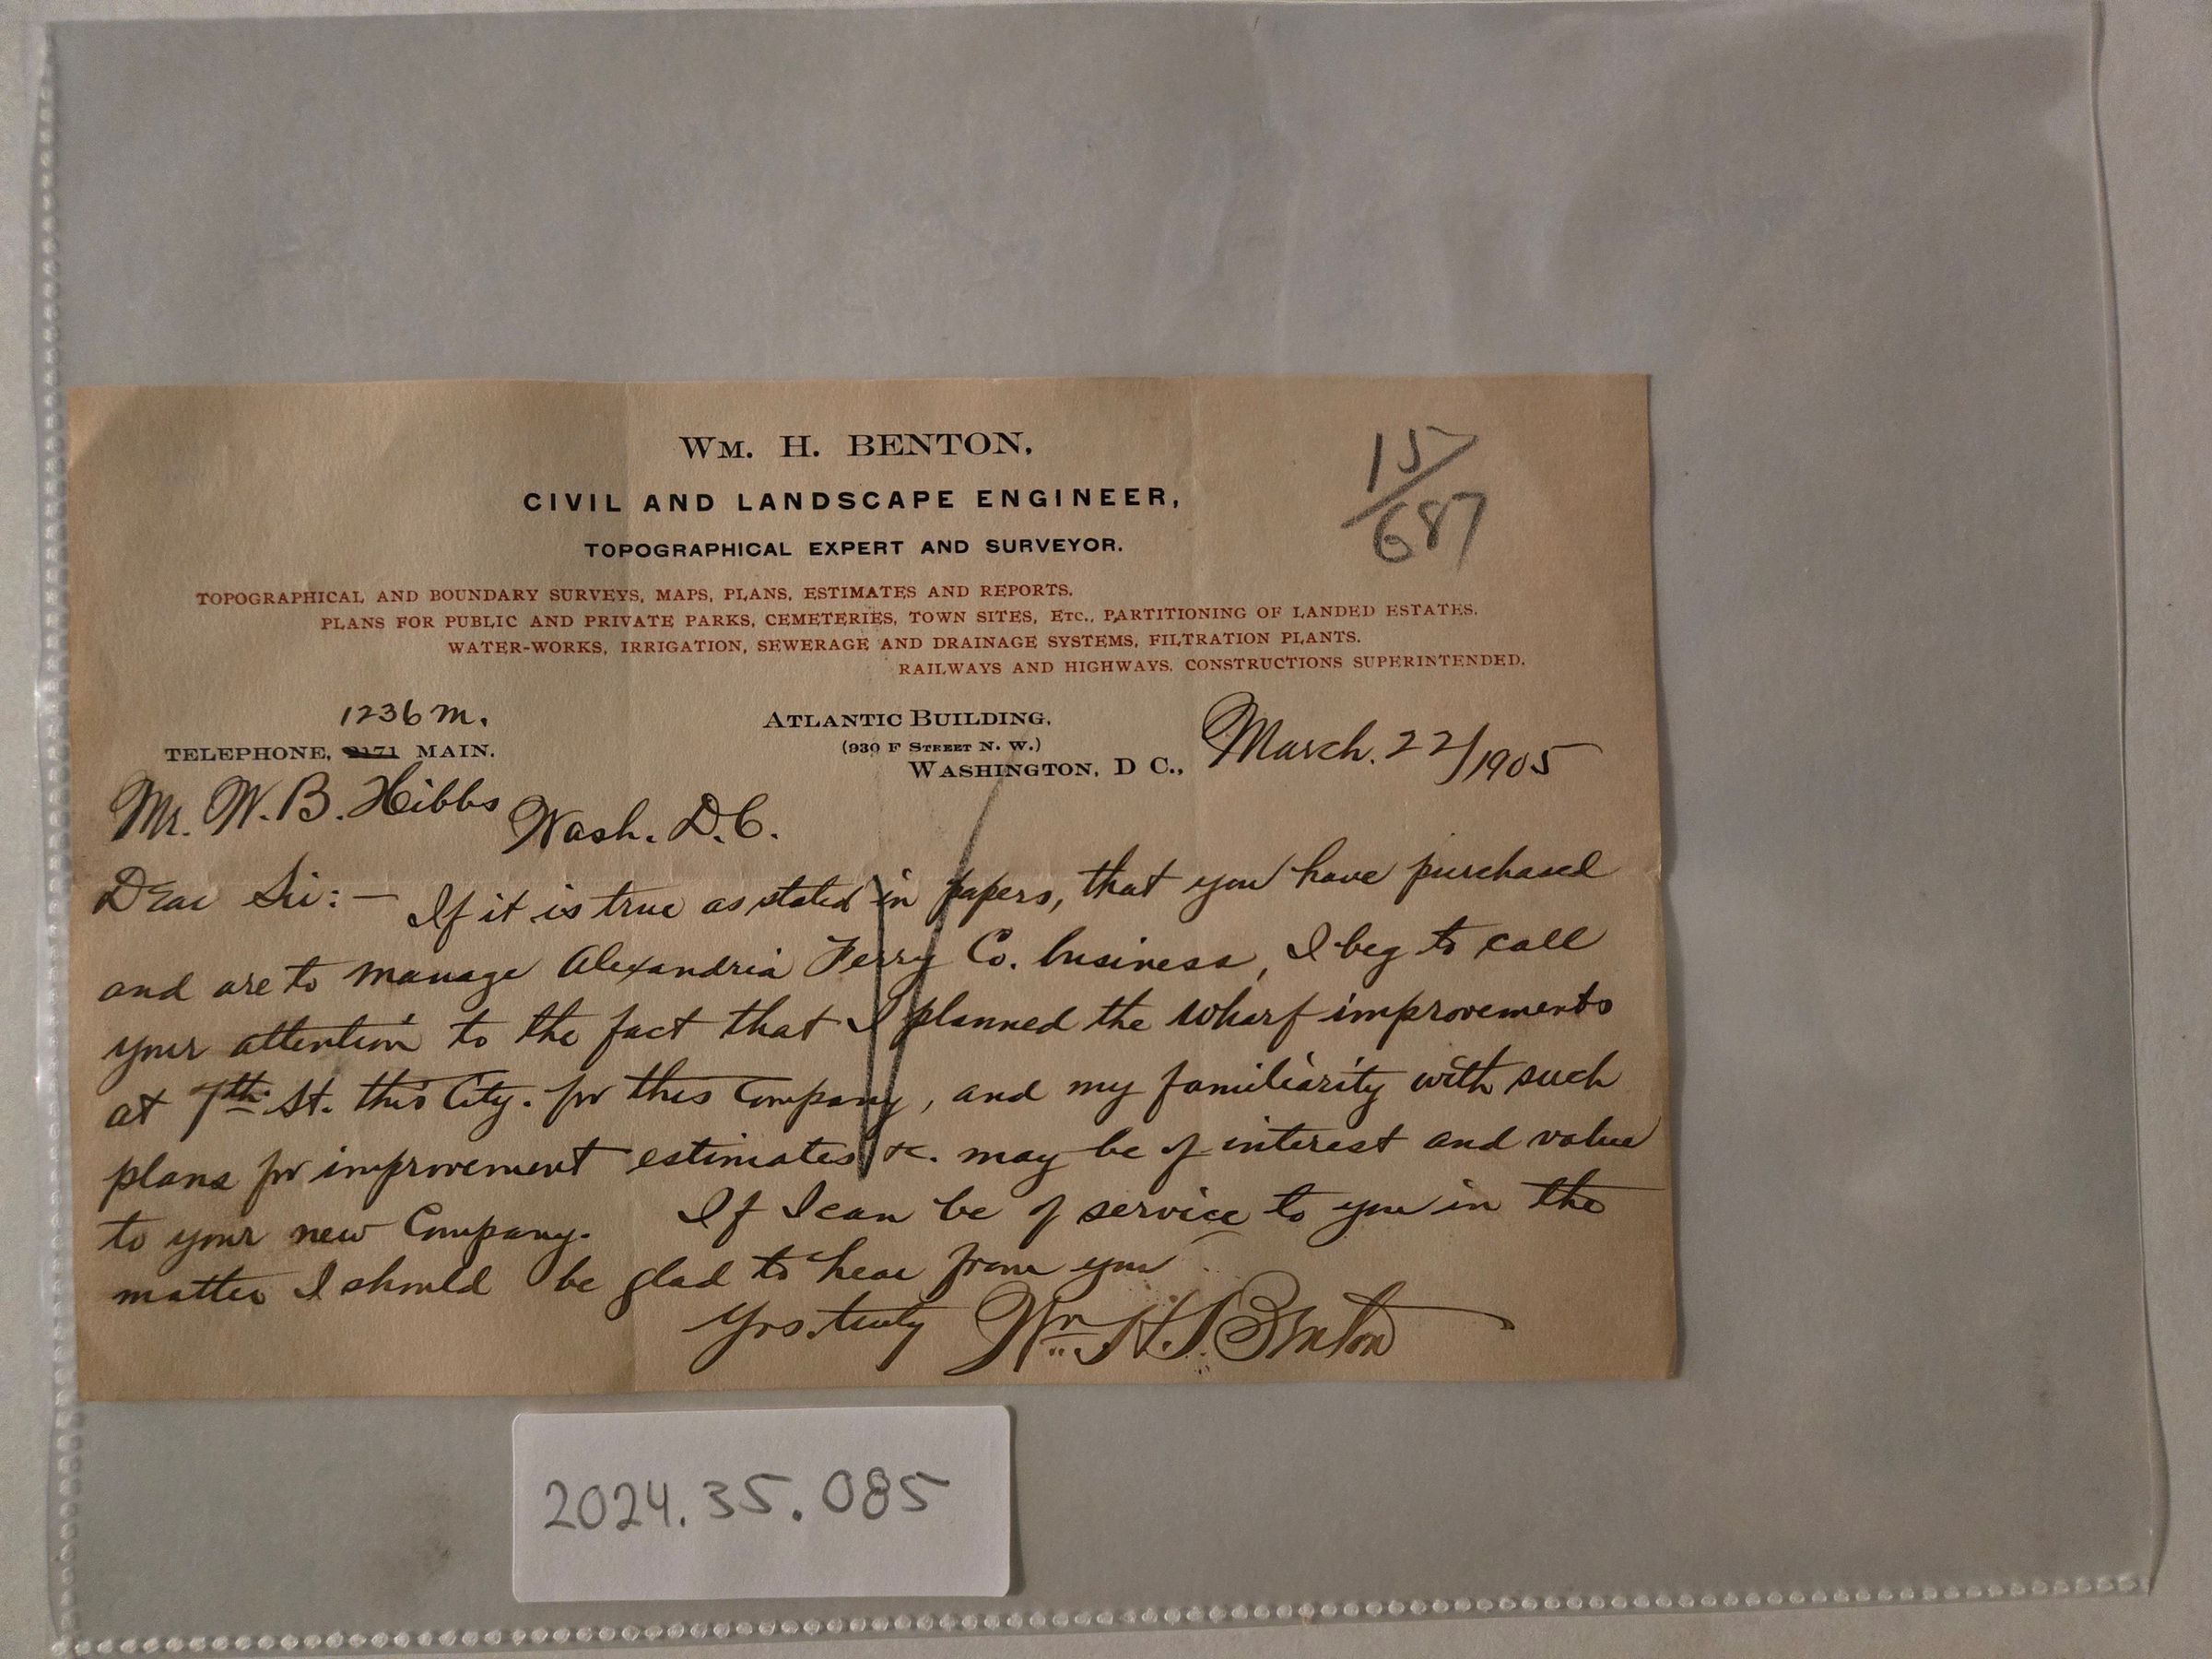 WM. H. BENTON,
CIVIL AND LANDSCAPE ENGINEER,
TOPOGRAPHICAL EXPERT AND SURVEYOR.
15/687
TOPOGRAPHICAL AND BOUNDARY SURVEYS, MAPS, PLANS, ESTIMATES AND REPORTS.
PLANS FOR PUBLIC AND PRIVATE PARKS, CEMETERIES, TOWN SITES, ETC., PARTITIONING OF LANDED ESTATES.
WATER-WORKS, IRRIGATION, SEWERAGE AND DRAINAGE SYSTEMS, FILTRATION PLANTS.
RAILWAYS AND HIGHWAYS. CONSTRUCTIONS SUPERINTENDED.
1236 m.
TELEPHONE, 2171 MAIN.
ATLANTIC BUILDING,
(930 F STREET N. W.)
WASHINGTON, D C., March. 22/1905
Mr. W. B. Hibbs
Wash. D.C.
Dear Sir:— If it is true as stated in papers, that you have purchased
and are to manage Alexandria Ferry Co. business, I beg to call
your attention to the fact that I planned the wharf improvements
at 7th St. this City. for this Company, and my familiarity with such
plans for improvement estimates &c. may be of interest and value
to your new Company. If I can be of service to you in the
matter I should be glad to hear from you
Yrs. truly Wm. H. Benton
2024.35.085